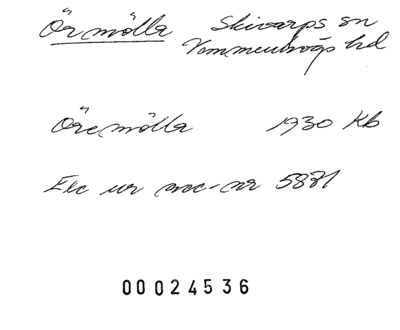 Örmölla Skivarps sn
Vemmenhögs hd
Öremölla 1930 Kb
Exc ur acc-nr 5871
00024536